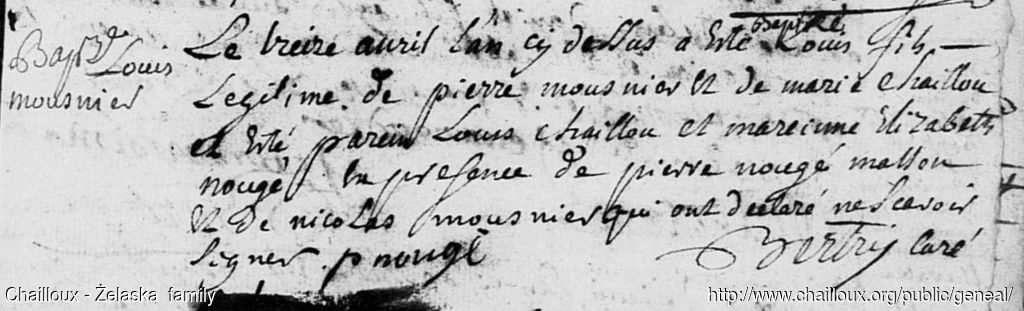 Bapt. de Louis
mousnier
baptisé
Le treize auril l'an cy dessus a esté Louis fils
Legitime de pierre mousnier et de marie chaillou
et esté parein Louis chaillou et mareinne Elizabeth
nougé En presence de pierre nougé masson
et de nicolas mousnier qui ont declaré ne scavoir
signer. p nougé Curé
Chailloux - Żelaska family
http://www.chailloux.org/public/geneal/